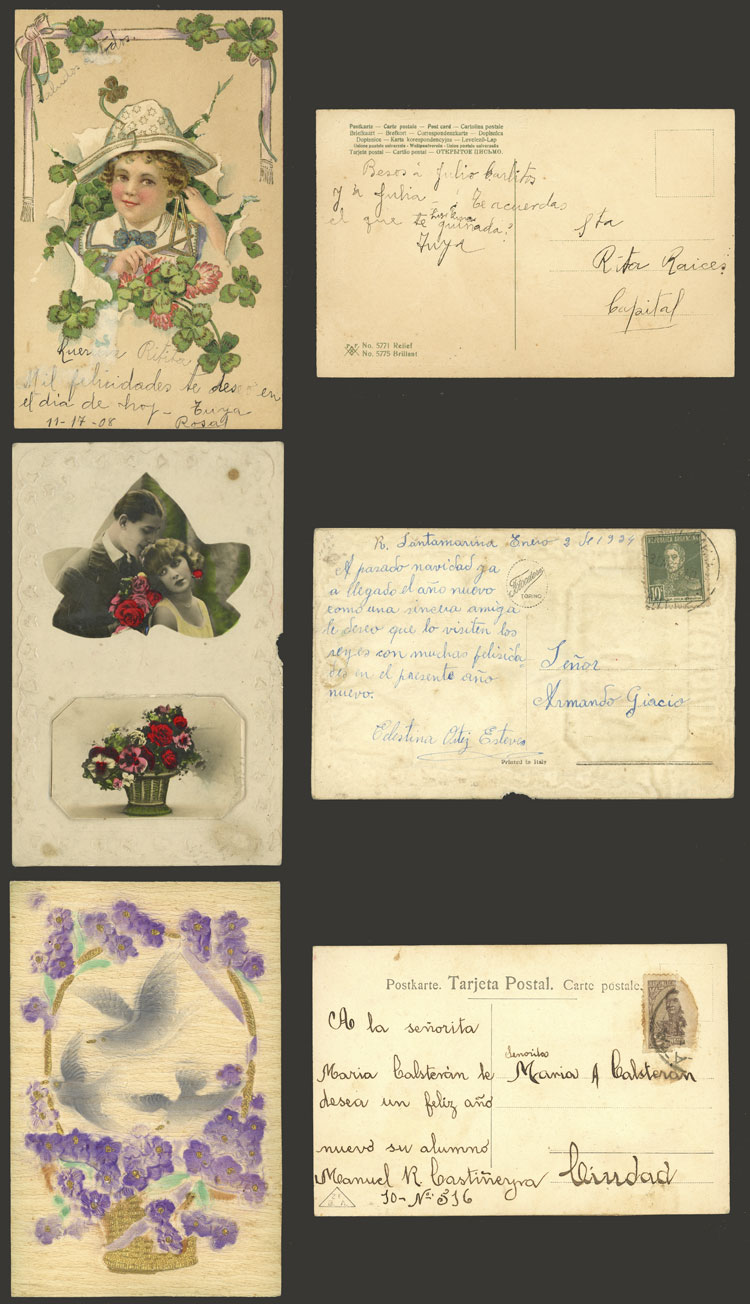 Saludos a todos.
Querida Rifita
Mil felicidades te deseo en
el dia de hoy - Tuya
11-17-08 Rosa
Postkarte — Carte postale — Post card — Cartolina postale
Briefkaart — Brefkort — Correspondenzkarte — Dopisnica
Dopisnice — Karta korespondencyjna — Levelezö-Lap
Union postale universelle - Weltpostverein - Unione postale universale
Tarjeta postal — Cartão postal — ОТКРЫТОЕ ПИСЬМО.
Besos á Julio Carlitos
y á Julia - Te acuerdas
el que te guiñada?
Tuya
Sta
Rita Raices
Capital
No. 5771 Relief
No. 5775 Brillant
R. Santamarina Enero 2 de 1934
A pasado navidad ya
a llegado el año nuevo
como una sincera amiga
le deseo que lo visiten los
reyes con muchas felisida
des in el presente año
nuevo.
Celestina Esteves
TORINO
REPUBLICA ARGENTINA
10
Señor
Armando Giacio
Printed in Italy
Postkarte. Tarjeta Postal. Carte postale.
A la señorita
Maria Calsterán le
desea un feliz año
nuevo su alumno
Manuel R. Castiñeyra
10-Nº 516
Señorita
Maria A Calsterán
Ciudad